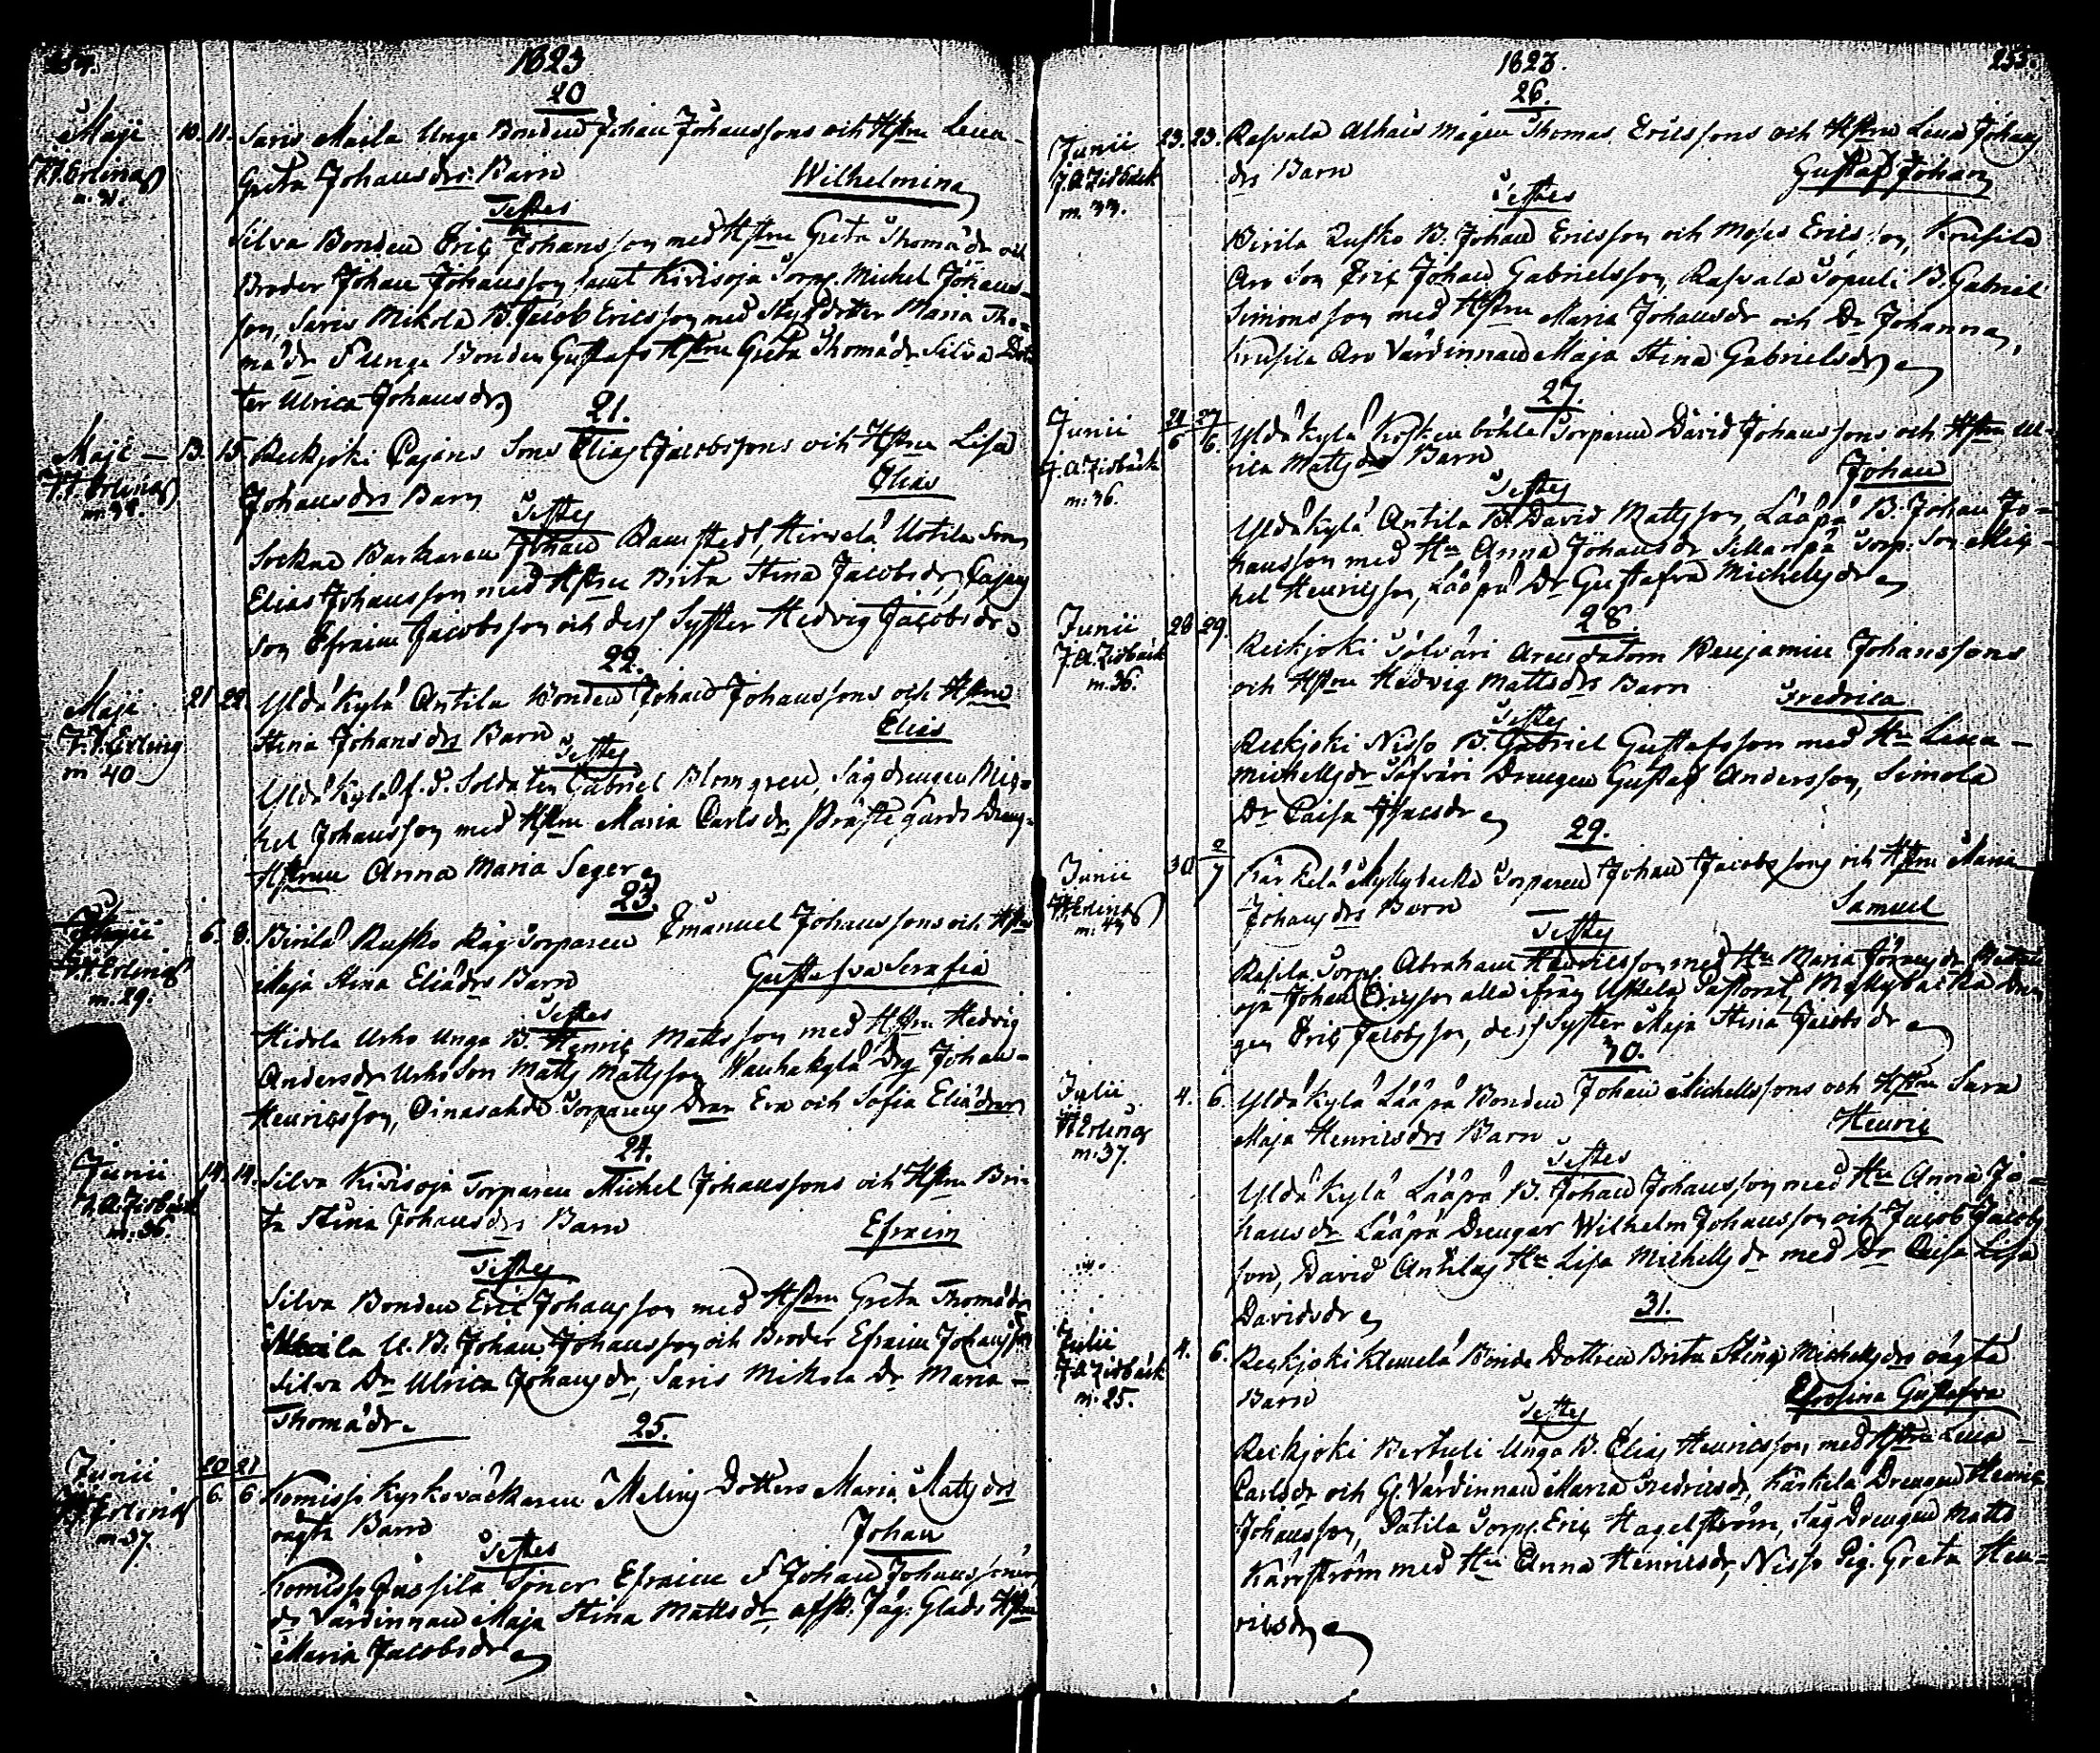 1823
20
Maji 10. 11. Saris Maila Unga Bonden Johan Johanssons och Hstru Lena
Greta Johansdrs Barn Wilhelmina
Testes
Silva Bonden Eric Johansson med Hstru Greta Thomädr och
Broder Johan Johansson samt Kivisoja Torp. Michel Johans-
son, Saris Mikola B. Jacob Ericsson med Styfdotter Maria Tho-
mädr Unga Bonden Gustafs Hstru Greta Thomädr Silva Dot-
ter Ulrica Johansdr
21.
Maji 13. 15. Reckjoki Pajans Sons Elias Jacobssons och Hstru Lisa
Johansdrs Barn Elias
Testes
Sockne Barkaren Johan Ramstedt, Hirvelä Uotila Son
Elias Johansson med Hstru Brita Stina Jacobsdr, Pajans
son Efraim Jacobsson och dess Syster Hedvig Jacobsdr
22.
Maji 21 22. Yldäkylä Antila Bonden Johan Johanssons och Hstru
m 40
Stina Johansdrs Barn Elias
Testes
Yldäkylä f.d. Soldaten Gabriel Blomgren, Sägdrengen Mic-
hel Johansson med Hstru Maria Carlsdr Prästegårds Dreng
Hstrun Anna Maria Seger
23.
6. 8. Birilä Rusko Räg Torparen Emanuel Johanssons och Hstru
m. 29.
Maja Stina Eliädrs Barn Gustafva Serafia
Testes
Hidola Urho Unga B. Henric Mattsson med Hstru Hedvig
Andersdr Urho Son Matts Mattsson Wauhakylä Drg Johan
Henricsson, Torparens Drar Eva och Sofia Eliädrar
24.
Junii 14. 14. Silva Kivisoja Torparen Michel Johanssons och Hstru Bri-
m. 36.
ta Stina Johansdrs Barn Efraim
Testes
Silva Bonden Eric Johansson med Hstru Greta Thomädr
U. B. Johan Johansson och Broder Efraim Johansson
Silva Dr Ulrica Johansdr, Saris Mikola Dr Maria
Thomädr
25.
Junii 20/6. 21/6 Komisso Kyrkoväckaren Melins Dotters Maria Mattsdrs
m. 37.
oägta Barn Johan
Testes
Komisso Jussila Söner Efraim & Johan Johanssöner
do Värdinnan Maja Stina Mattsdr, afsk: Jäg: Glads Hstru
Maria Jacobsdr
1823.
255.
26.
Junii 23. 23. Rasvala Alhais mågen Thomas Ericssons och Hstru Lena Johans
J.A. Zidbäck
m. 33.
drs Barn Gustaf Johan
Testes
Birila Rusko B. Johan Ericsson och Moses Ericsson, Krusila
Aro Son Eric Johan Gabrielsson, Rasvala Sopuli B. Gabriel
Simonsson med Hstru Maria Johansdr och Dr Johanna,
Krusila Aro Värdinnan Maja Stina Gabrielsdr
27.
Junii 24/6 27/6. Yldäkylä Koskenböhle Torparen David Johanssons och Hstru Ul-
J.A. Zidbäck
m. 36.
rica Mattsdrs Barn Johan
Testes
Yldäkylä Antila B. David Mattsson, Lääpä B. Johan Jo-
hansson med Hu Anna Johansdr Sillanpä Torp: Son Mic-
hel Henricsson, Lääpä Dr Gustafva Michelsdr
28.
Junii 28 29. Reckjoki Sölväri Arendatorn Benjamin Johanssons
J.A. Zidbäck
m. 36.
och Hstru Hedvig Mattsdrs Barn Fredrica
Testes
Reckjoki Nisso B. Gabriel Gustafsson med Hu Lena
Michelsdr Sölväri Drengen Gustaf Andersson, Simola
Dr Caisa Isacsdr
29.
Junii 30 2/7 Kärkelä Myllybacka Torparen Johan Jacobssons och Hstru Maria
Johansdrs Barn Samuel
Testes
Rasila Torp. Abraham Henricsson med Hu Maria
oja Johan Ericsson alla ifrån Uskela Pastorat, Myllybacka Dren
gen Eric Jacobsson, dess Syster Maja Stina Jacobsdr
30.
Julii 4. 6. Yldäkylä Lääpä Bonden Johan Michelssons och Hstru Sara
m. 37.
Maja Henricsdrs Barn Henric
Testes
Yldäkylä Lääpä B. Johan Johansson med Hu Anna Jo-
hansdr Lääpä Drengar Wilhelm Johansson och Jacob Jacobs
son, David Antilas Hu Lisa Michelsdr med Dr Caisa Lisa
Davidsdr
31.
Julii 4. 6. Reckjoki Klemelä Bonde Dottren Brita Stina Michelsdrs oägta
J.A. Zidbäck
m. 25.
Barn Efrosina Gustafva
Testes
Reckjoki Bertuli Unga B. Elias Henricsson med Hstru Lena
Carlsdr och Gl. Värdinnan Maria Fredricsdr, Kärkelä Drengen Henric
Johansson, Patila Torp. Eric Hagelström, Säg Drengen Matts
Kärrström med Hu Anna Henricsdr, Nisso Pig. Greta Hen-
ricsdr